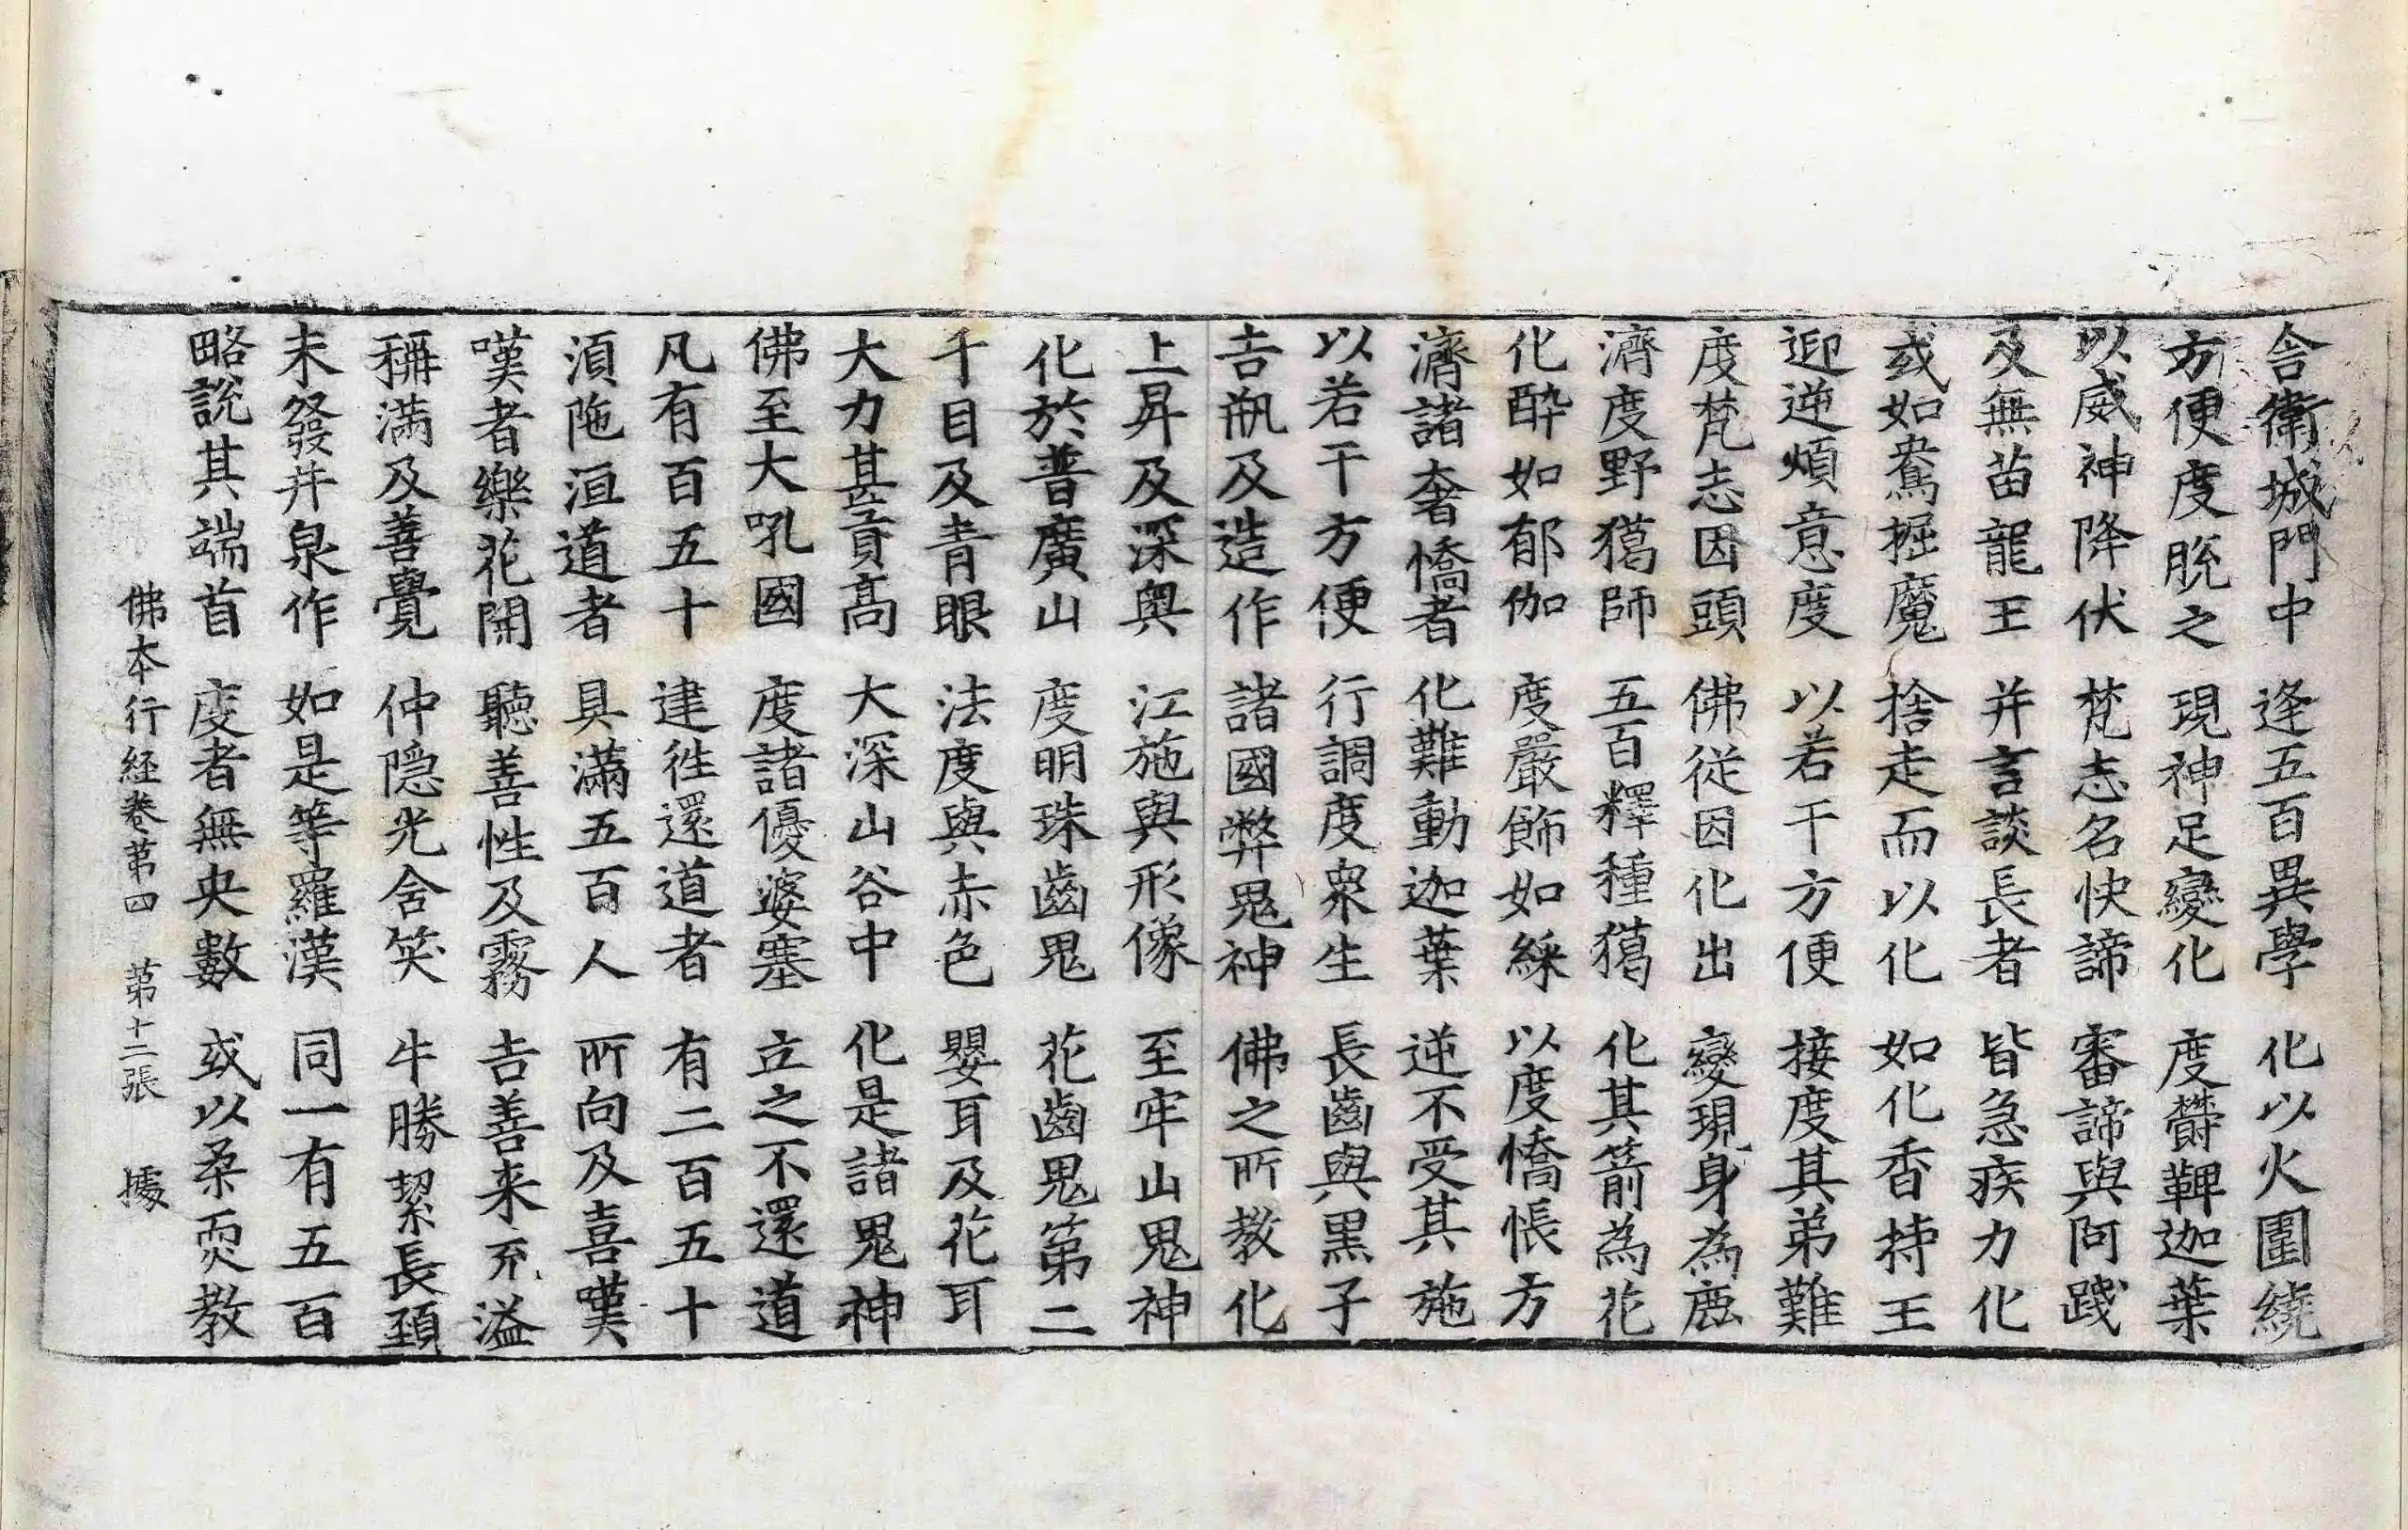 舍衛城門中 逢五百異學 化以火圍繞
方便度脫之 現神足變化 度欝鞞迦葉
以威神降伏 梵志名快諦 審諦與阿踐
及無苗龍王 并言談長者 皆急疾力化
或如鴦掘魔 捨走而以化 如化香持王
迎逆煩意度 以若干方便 接度其弟難
度梵志因頭 佛從因化出 變現身為鹿
濟度野獦師 五百釋種獦 化其箭為花
化酔如郁伽 度嚴飾如綵 以度憍悵方
濟諸奢憍者 化難動迦葉 逆不受其施
以若干方便 行調度衆生 長齒與黒子
吉瓶及造作 諸國弊鬼神 佛之所教化
上昇及深與 江施與形像 至牢山鬼神
化於普廣山 度明珠齒鬼 花齒鬼第二
千目及青眼 法度與赤色 嬰耳及花耳
大力甚貢高 大深山谷中 化是諸鬼神
佛至大吼國 度諸優婆塞 立之不還道
凡有百五十 逮徃還道者 有二百五十
湏陁洹道者 具滿五百人 所向及喜嘆
嘆者樂花開 聽善性及霧 吉善来充溢
稱滿及善覺 仲隠光含笑 牛勝絜長頚
未發井泉作 如是等羅漢 同一有五百
略說其端首 度者無央數 或以柔耎教
佛本行經卷第四 第十二張 㩀